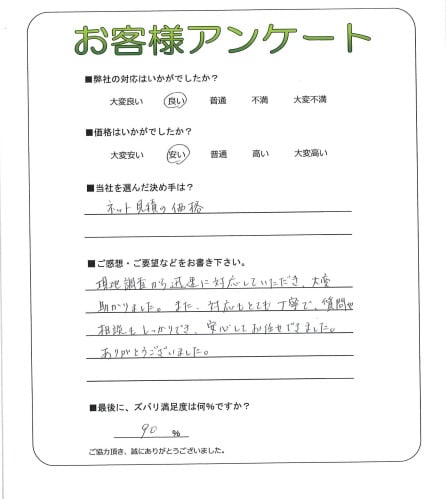 お客様アンケート
■弊社の対応はいかがでしたか？
大変良い 良い 普通 不満 大変不満
■価格はいかがでしたか？
大変安い 安い 普通 高い 大変高い
■当社を選んだ決め手は？
ネット見積の価格
■ご感想・ご要望などをお書き下さい。
現地調査から迅速に対応していただき、大変
助かりました。また、対応もとても丁寧で、質問や
相談もしっかりでき、安心してお任せできました。
ありがとうございました。
■最後に、ズバリ満足度は何％ですか？
90 ％
ご協力頂き、誠にありがとうございました。